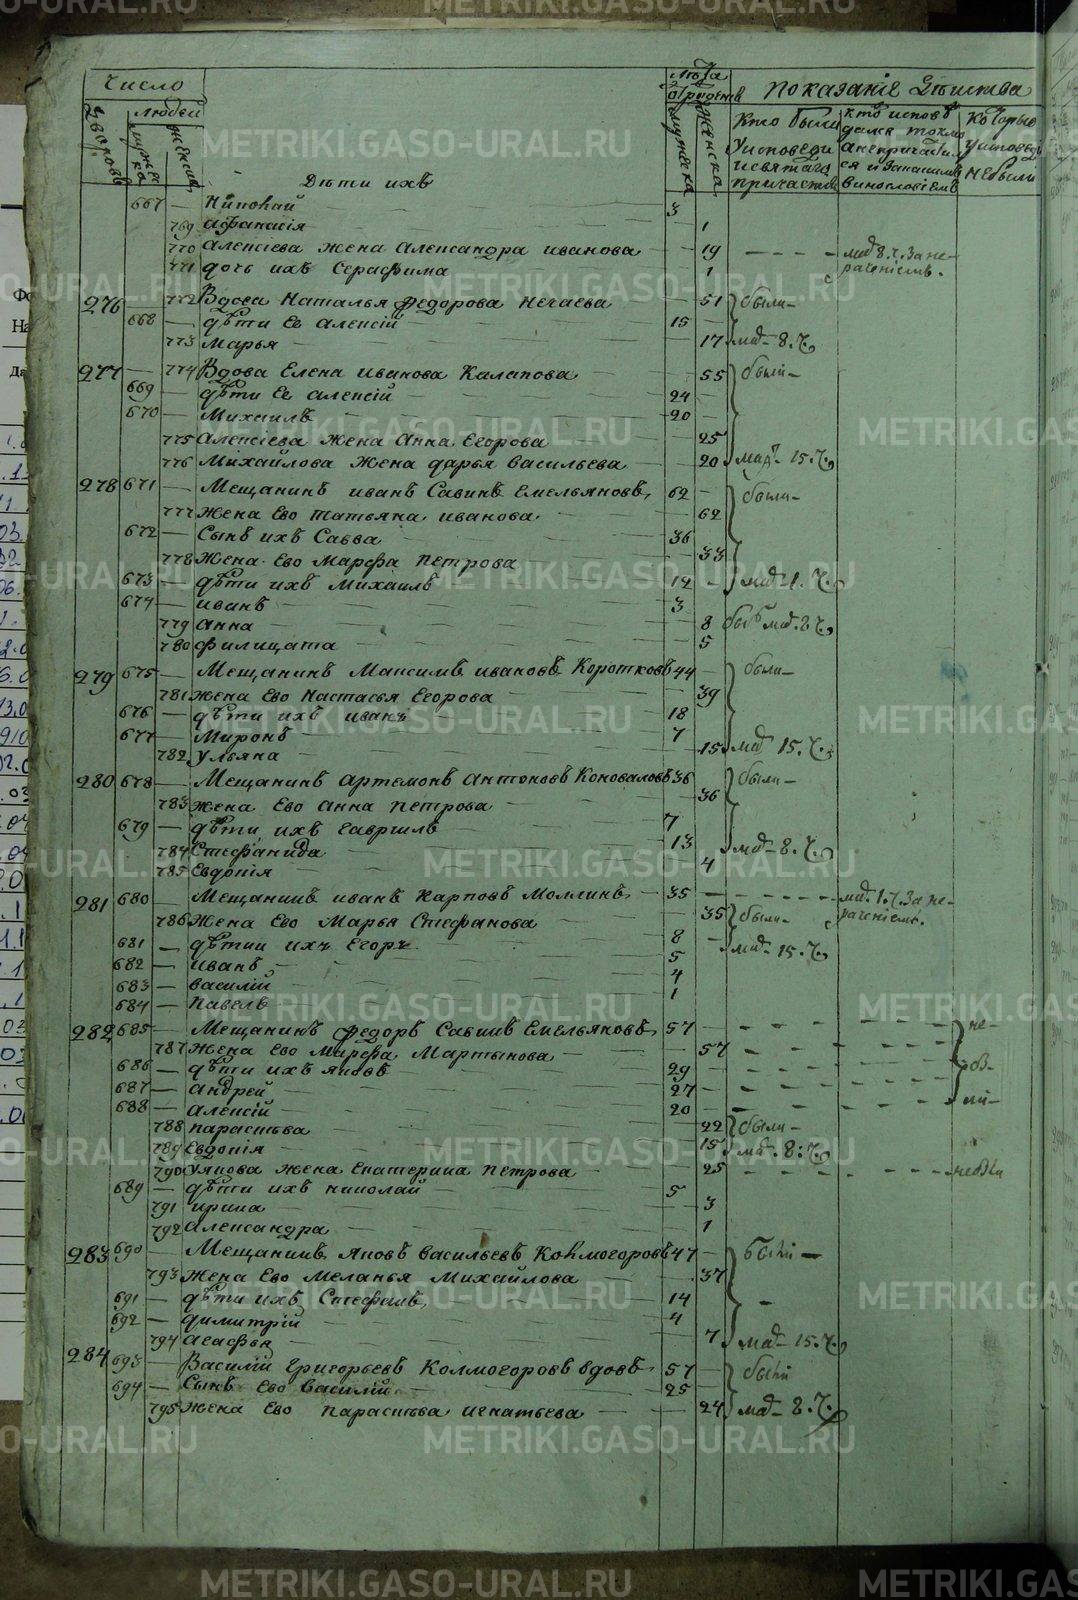 Число
Лѣта от рожденія
Показаніе дѣйства
Дворовъ
людей
мужеска
женска
мужеска
женска
Кто были у исповеди и святаго причастія
кто исповѣдался токмо а не причастился и за каким винословіемъ
Которые у исповеди не были
Дѣти ихъ
667 — Николай — 3
769 Афанасія — 1
770 Алексіева жена Александра Иванова — 19 — — — — маі 8.ч. за нерачѣніемъ.
771 дочь ихъ Серафима — 1
276 — 772 Вдова Наталья Федорова Нечаева — 51 были —
668 — дѣти Ее Алексій — 15
773 Марья — 17 маі — 8.ч.
277 — 774 Вдова Елена Иванова Калапова — 55 были —
669 — дѣти Ее Алексій — 24
670 — Михаилъ — 20
775 Алексіева жена Анна Егорова — 25
776 Михайлова жена Дарья Васильева — 20 маі — 15.ч.
278 671 — Мещанинъ Иванъ Савинъ Емельяновъ, 62 — были —
777 Жена Ево Татьяна Иванова — 62
672 — Сынъ ихъ Савва — 36
778 Жена Ево Марфа Петрова — 33
673 — дѣти ихъ Михаилъ — 12 — маі 1. ч.
674 — Иванъ — 3
779 Анна — 8 был маі. 8 ч.
780 Филицата — 5
279 675 — Мещанинъ Максимъ Ивановъ Коротковъ 44 были —
781 Жена Ево Настасья Егорова — 39
676 — дѣти ихъ Иванъ — 18
677 — Миронъ — 7
782 Ульяна — 15 маі 15.ч.
280 678 — Мещанинъ Артемонъ Антоновъ Коноваловъ 36 были —
783 Жена Ево Анна Петрова — 36
679 — дѣти ихъ Гаврилъ — 7
784 Стефанида — 13 маі — 8.ч.
785 Евдокія — 4
281 680 — Мещанинъ Иванъ Карповъ Молминъ — 35 — — — — маі. 1.ч. за нерачѣніемъ.
786 Жена Ево Марья Стефанова — 35 были —
681 — дѣтии ихъ Егоръ — 8 — маі — 15.ч.
682 — Иванъ — 5
683 — Василій — 4
684 — Павелъ — 1
282 685 — Мещанинъ Федоръ Савинъ Емельяновъ, 57 — — — — не-
787 Жена Ево Марфа Мартынова — 57
686 — дѣти ихъ Яковъ — 29 — — — — бы-
687 — Андрей — 27
688 — Алексій — 20 — — — — ли —
788 Парасковa — 22 были —
789 Евдокія — 15 маі. 8.ч.
790 Уякова жена Екатерина Петрова — 25 — — — — небыли
689 — дѣти ихъ Николай — 5
791 Ирина — 3
792 Александра — 1
283 690 — Мещанинъ Яковъ Васильевъ Колмогоровъ 47 — были —
793 Жена Ево Меланья Михайлова — 37
691 — дѣти ихъ Стефанъ, — 14 —
692 — Димитрій — 4
794 Агафья — 7 маі — 15.ч.
284 693 — Василій Григорьевъ Колмогоровъ вдовъ 57 — были
694 — Сынъ Ево Василій — 25
795 Жена Ево Парасковa Игнатьева — 24 маі — 8.ч.
METRIKI.GASO-URAL.RU